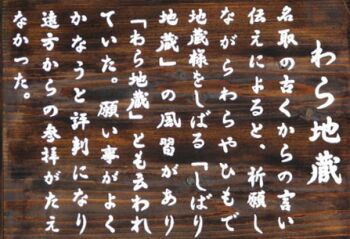 わら地蔵
名取の古くからの言い
伝えによると、祈願し
ながらわらやひもで
地蔵様をしばる「しばり
地蔵」の風習があり
「わら地蔵」とも云われ
ていた。願い事がよく
かなうと評判になり
遠方からの参拝がたえ
なかった。